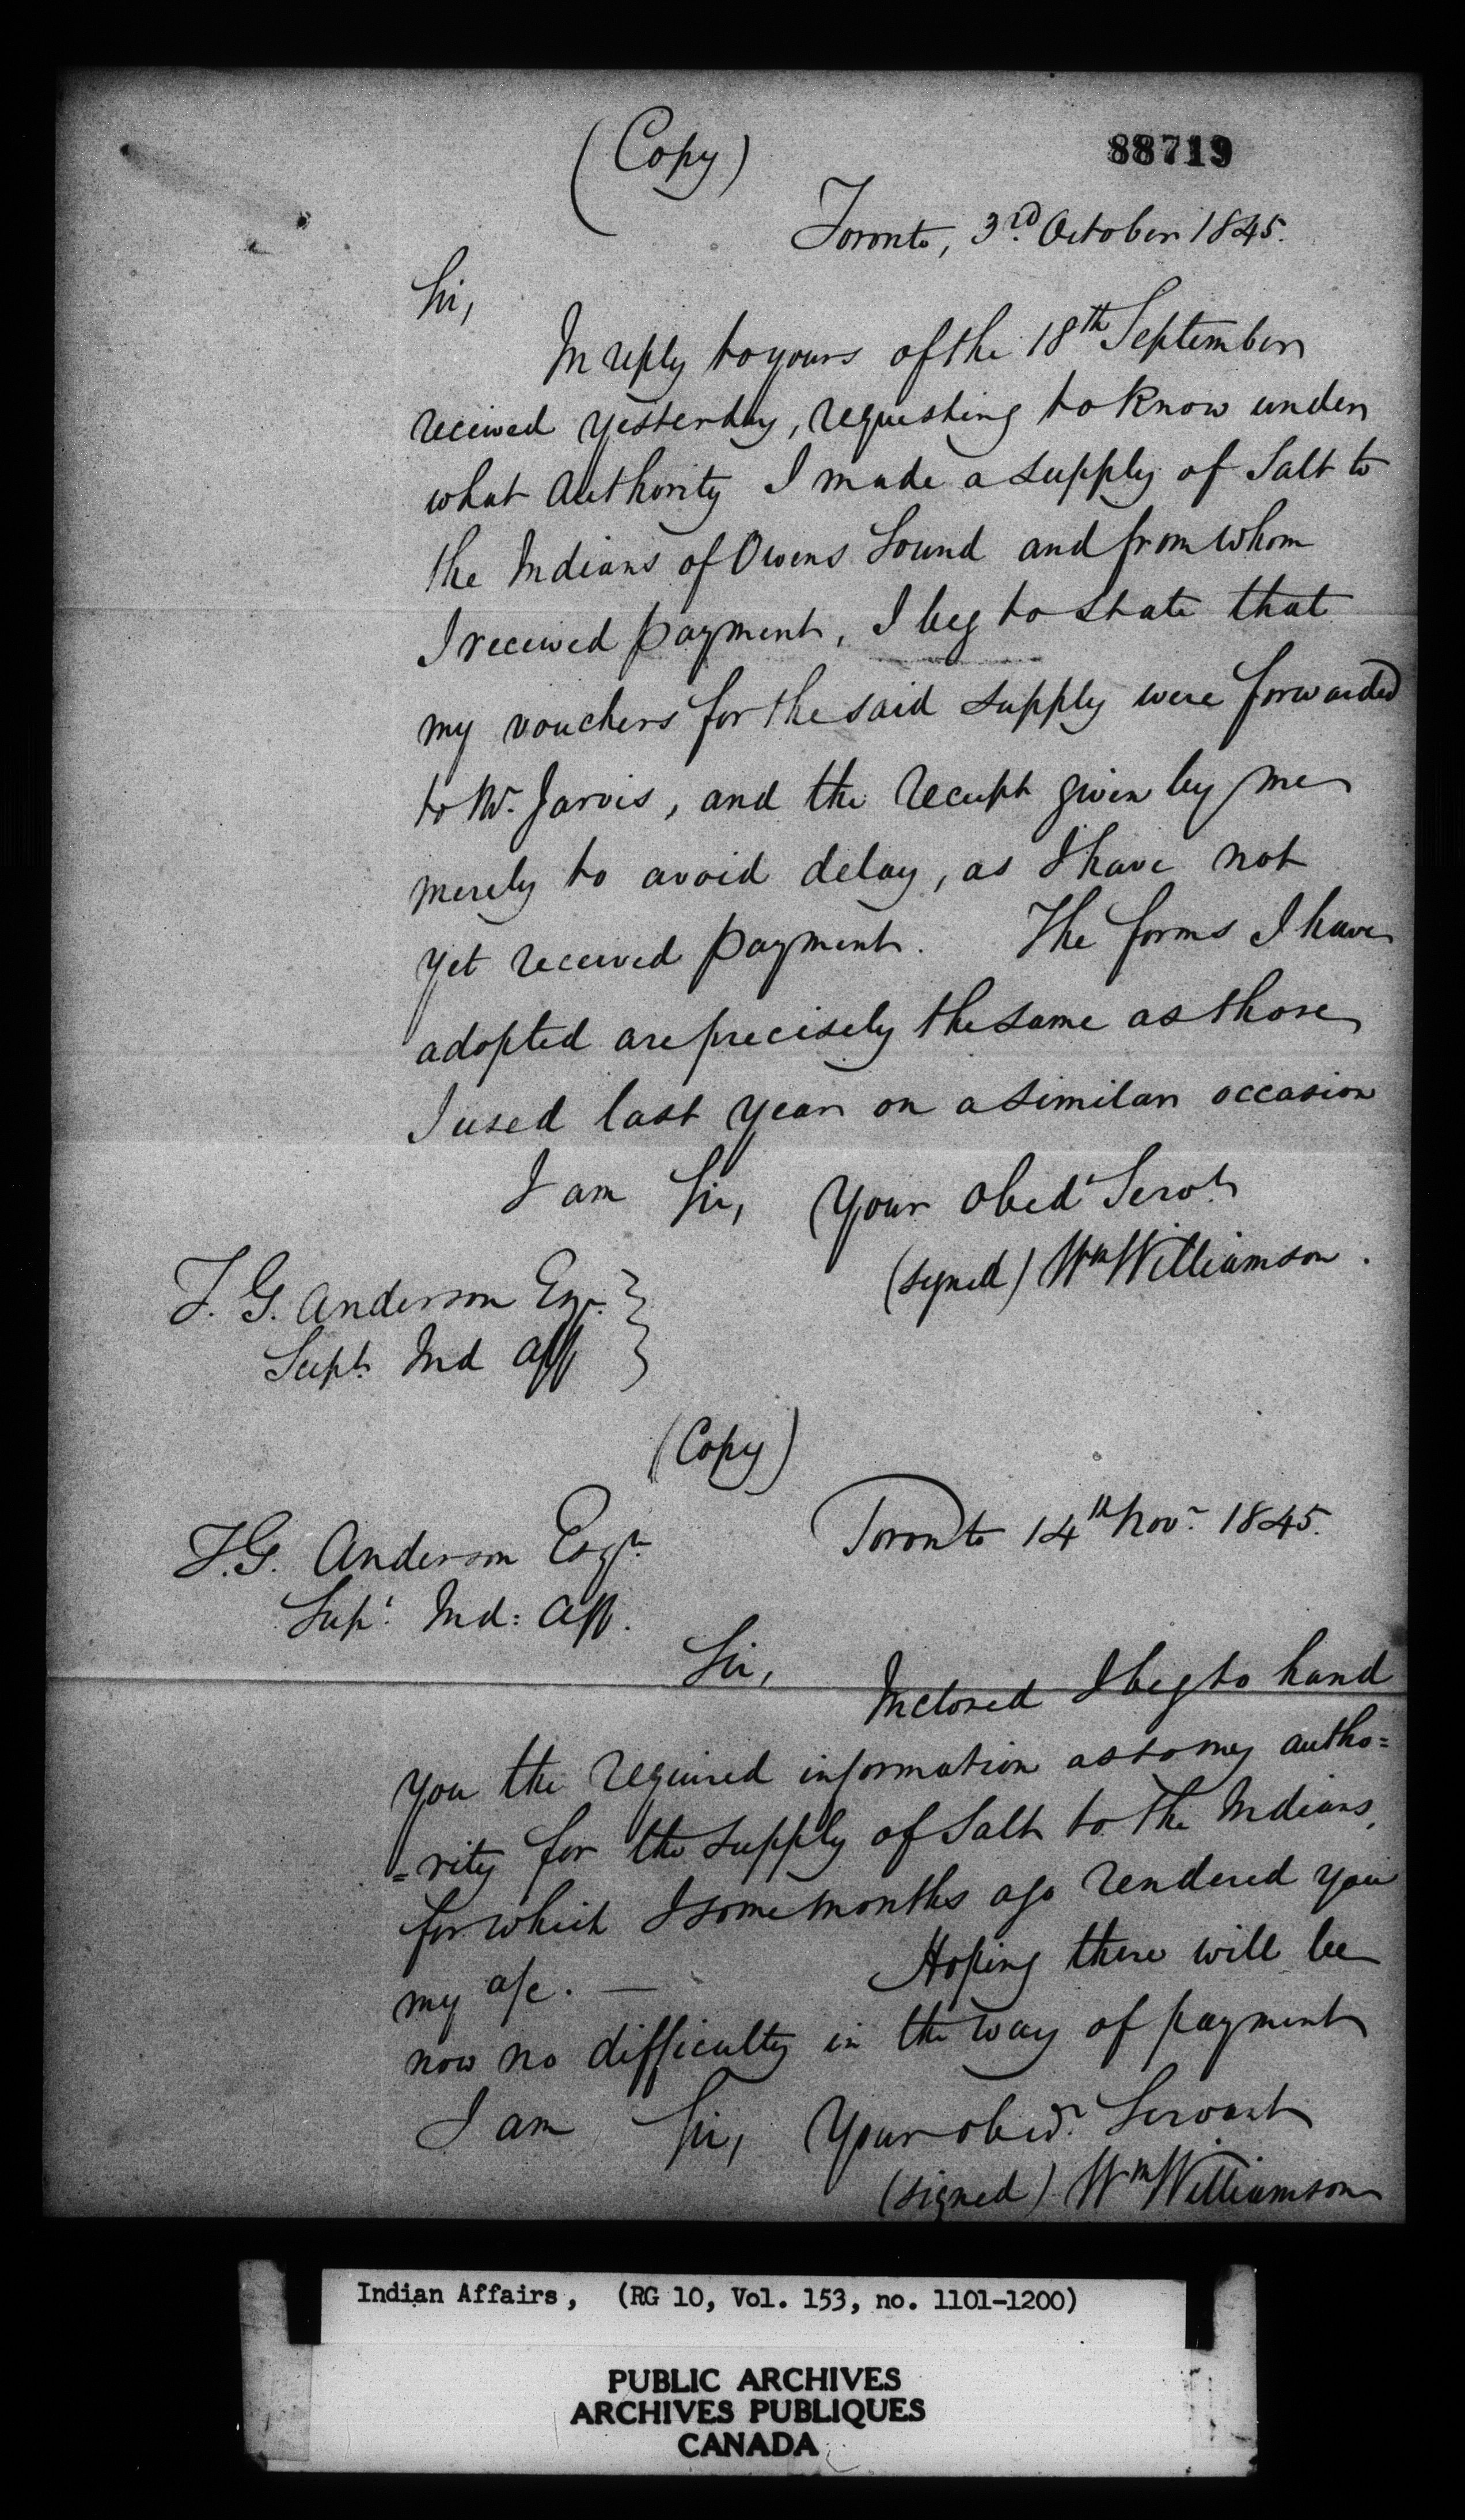 (Copy)
88719
Toronto, 3rd October 1845.
Sir,
In reply to yours of the 18th September
received yesterday, requesting to know under
what authority I made a supply of Salt to
the Indians of Owens Sound and from whom
I received payment, I beg to state that
my vouchers for the said supply were forwarded
to Mr. Jarvis, and the receipt given by me
merely to avoid delay, as I have not
yet received payment. The forms I have
adopted are precisely the same as those
I used last year on a similar occasion
I am Sir, Your obedt Servt
(signed) Wm Williamson.
T. G. Anderson Esqr.
Supt Ind Aff
(Copy)
Toronto 14th Novr 1845.
T.G. Anderson Esqr
Supt. Ind: Aff.
Sir,
Inclosed I beg to hand
you the required information as to my autho=
=rity for the supply of Salt to the Indians,
for which I some months ago rendered you
my a/c. — Hoping there will be
now no difficulty in the way of payment
I am Sir, Your obedt. Servant
(signed) Wm Williamson
Indian Affairs, (RG 10, Vol. 153, no. 1101-1200)
PUBLIC ARCHIVES
ARCHIVES PUBLIQUES
CANADA